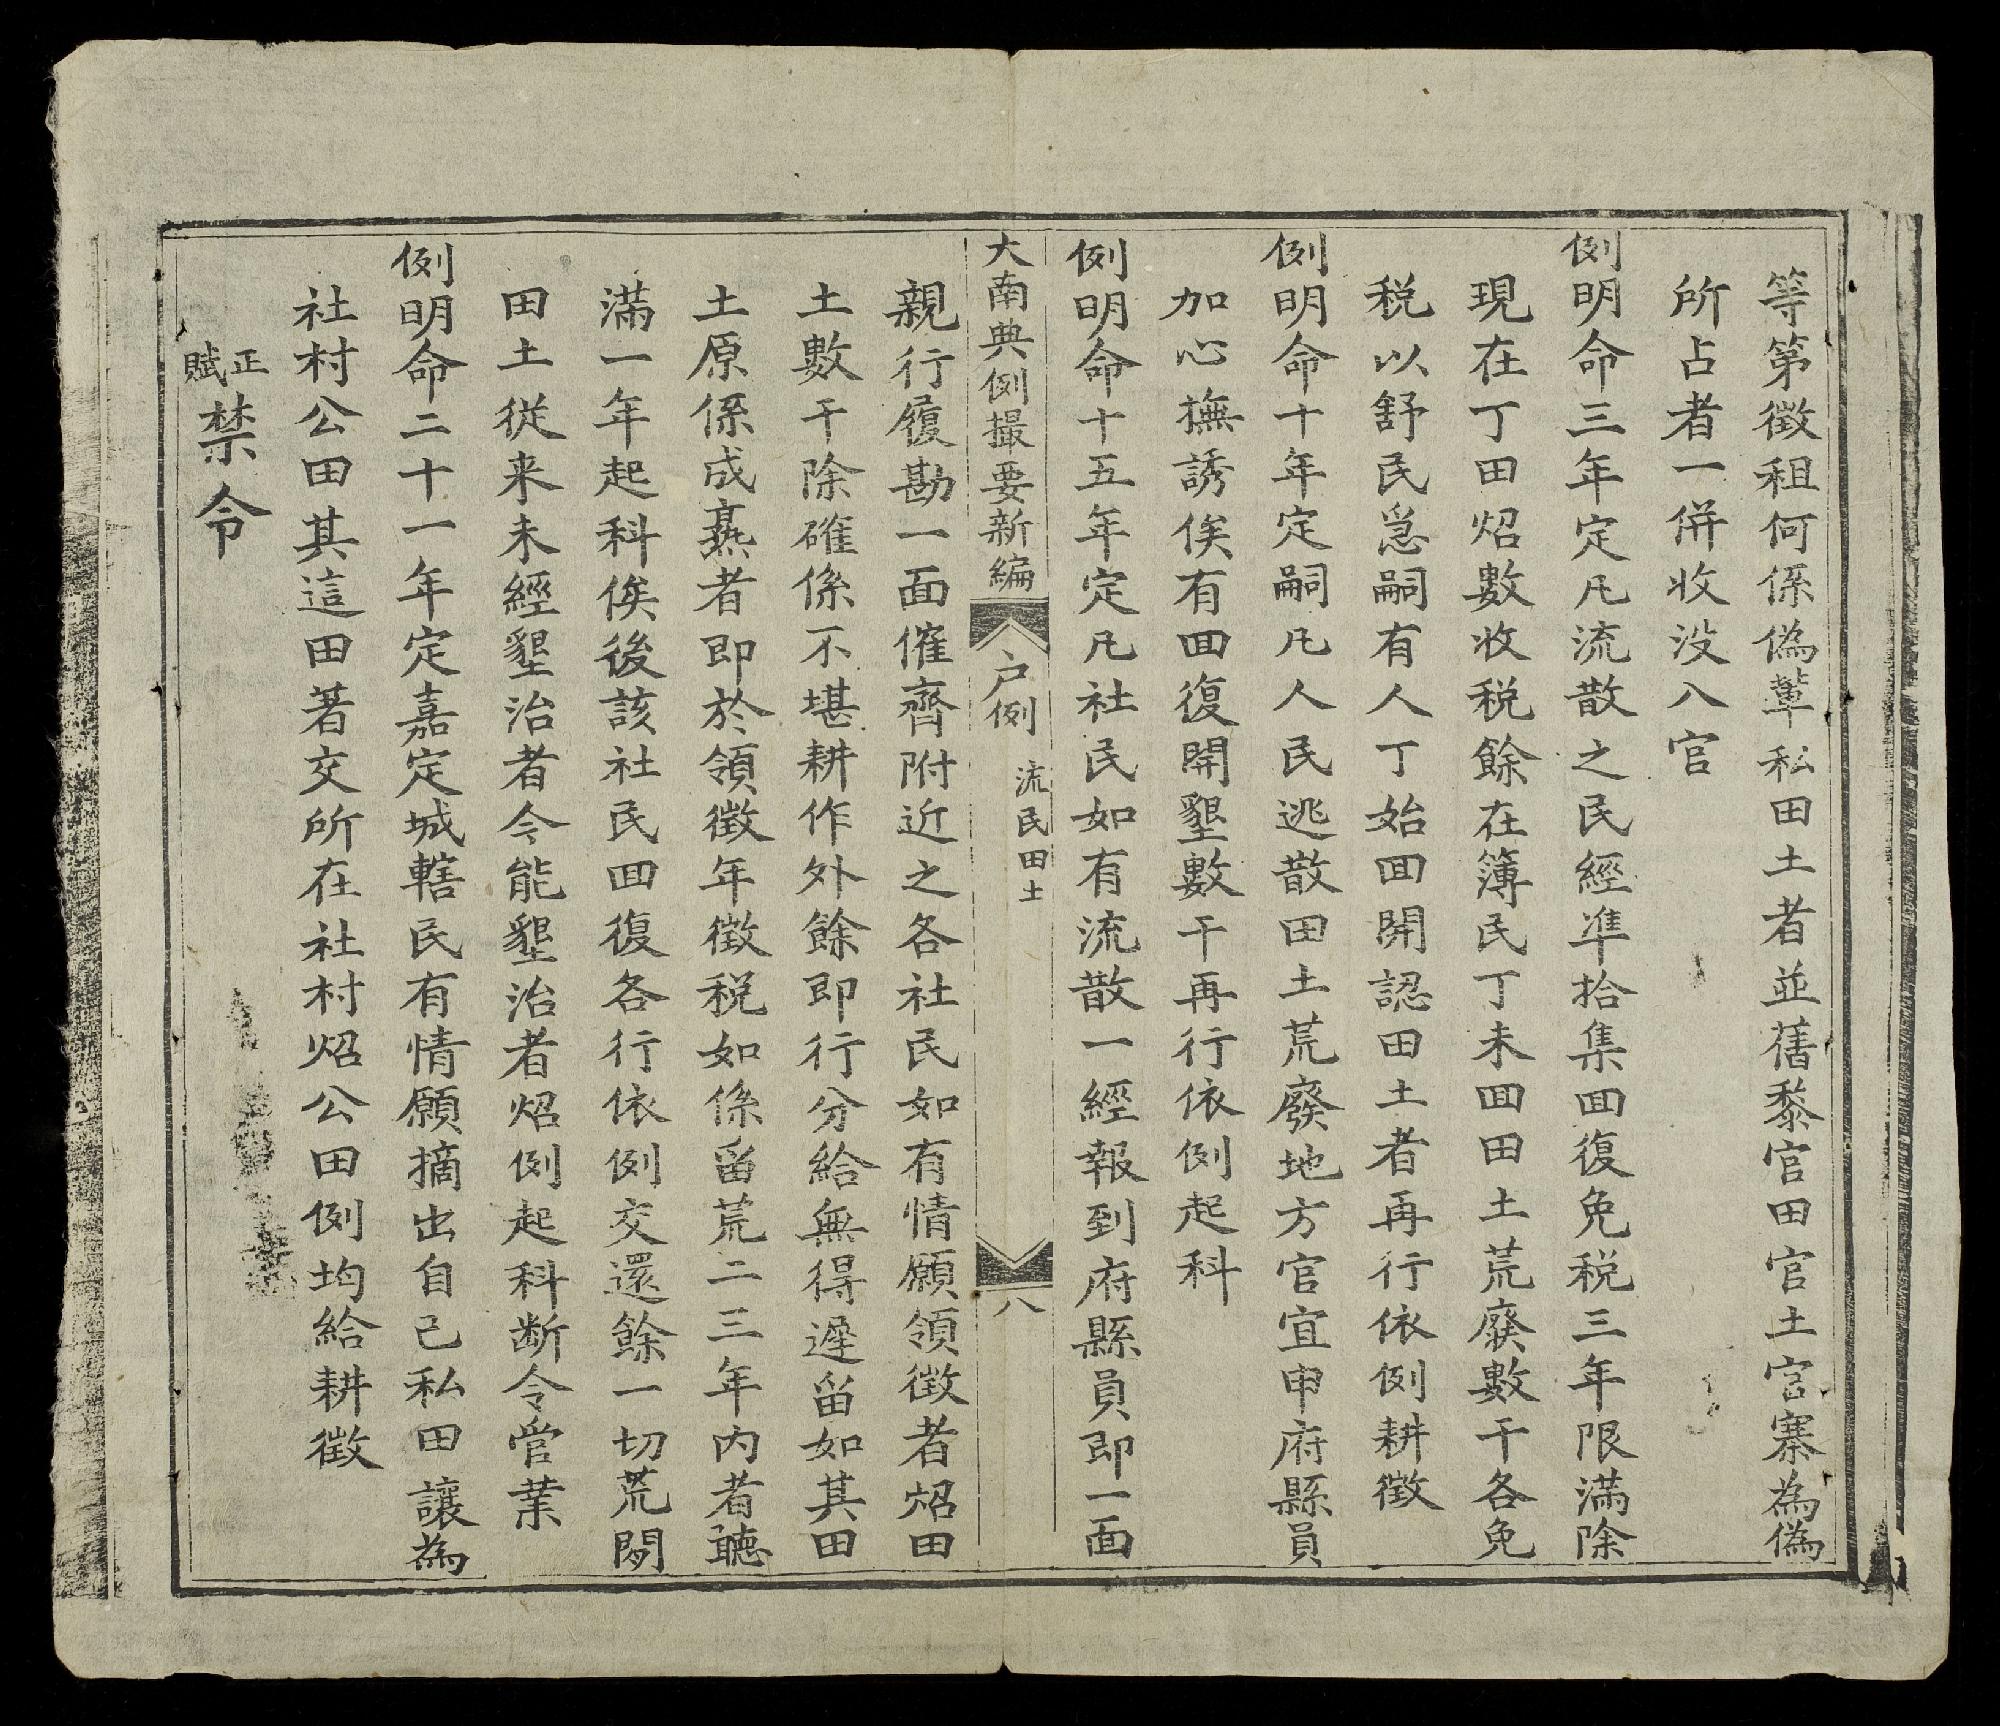 等第徵租何係偽輩私田土者並舊黎官田官土官寨為偽
所占者一併收没入官
例明命三年定凡流散之民經準拾集囬復免税三年限滿除
現在丁田炤數收税餘在簿民丁未囬田土荒廢數干各免
税以舒民急嗣有人丁始囬開認田土者再行依例耕徵
例明命十年定嗣凡人民逃散田土荒廢地方官宜申府縣員
加心撫誘俟有囬復開墾數干再行依例起科
例明命十五年定凡社民如有流散一經報到府縣員即一面
大南典例撮要新編 户例 流民田土 八
親行履勘一面催齊附近之各社民如有情願領徵者炤田
土數干除確係不堪耕作外餘即行分給無得遲畄如其田
土原係成爇者即於領徵年徵税如係畄荒二三年內者聽
滿一年起科俟後該社民囬復各行依例交還餘一切荒閒
田土從来未經墾治者令能墾治者炤例起科断令管業
例明命二十一年定嘉定城轄民有情願摘出自己私田讓為
社村公田其這田著交所在社村炤公田例均給耕徵
正賦 禁令